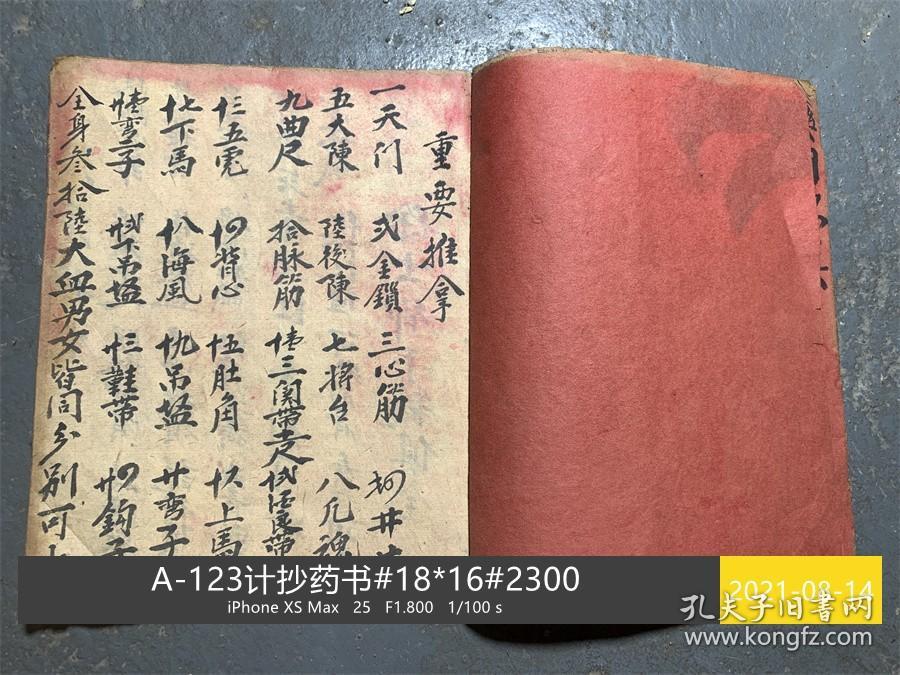 重要推拿
一天门 弍金鎖 三心筋 井
五大陳 陸後陳 七将台 八凡魂
九曲尺 拾脉筋 三関带走
五虎 背心 肚角 上馬
下馬 海風 吊 廿弯子
弯子 下吊 鞋带 鈎子
全身叁拾陸大血男女皆同分别可
A-123计抄药书#18*16#2300
iPhone XS Max 25 F1.800 1/100 s
2021-08-14
孔夫子旧書网
www.kongfz.com